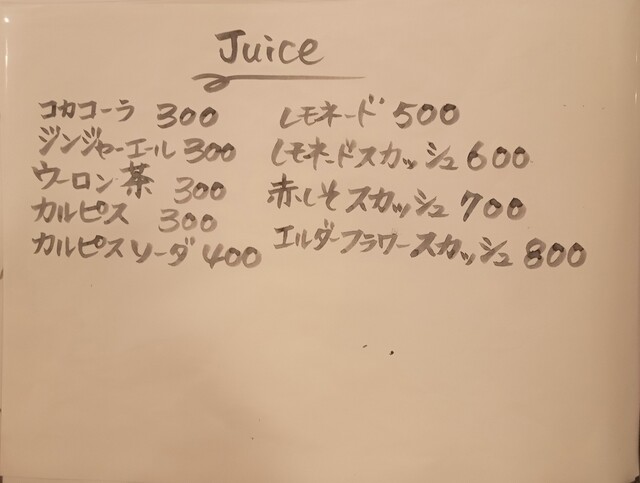 Juice
コカコーラ 300
ジンジャーエール 300
ウーロン茶 300
カルピス 300
カルピスソーダ 400
レモネード 500
レモネードスカッシュ 600
赤しそスカッシュ 700
エルダーフラワースカッシュ 800